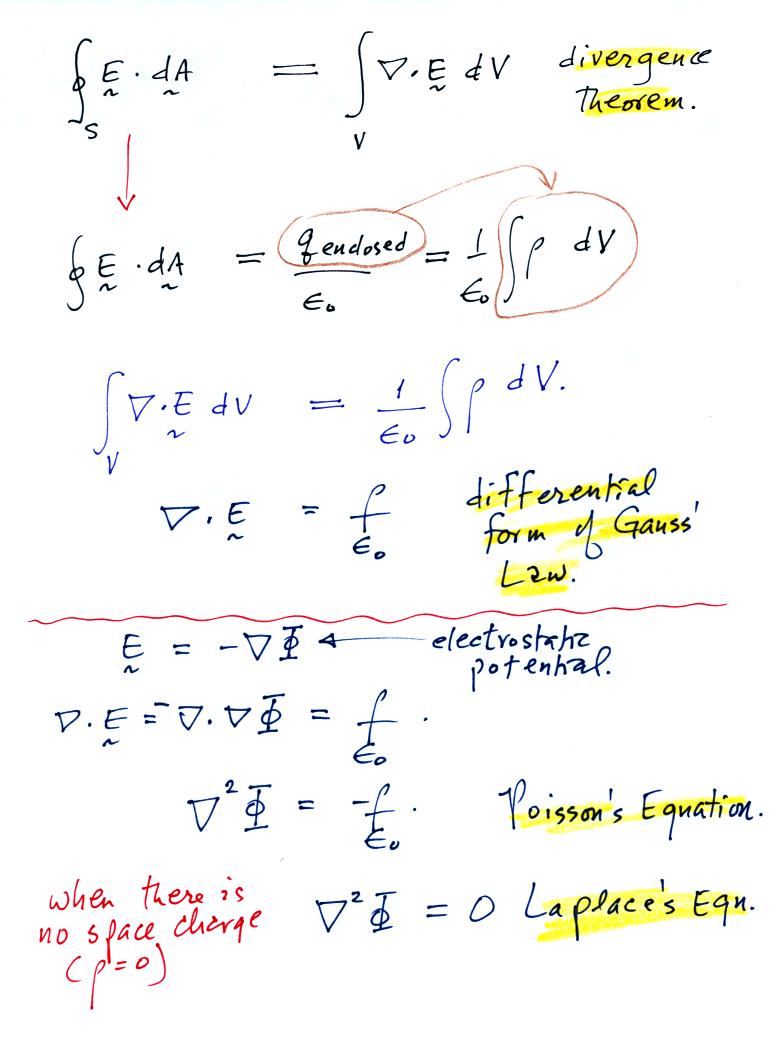 ∮_S Ḛ · dA̰ = ∫_V ∇·Ḛ dV divergence
theorem.
∮ Ḛ · dA̰ = q enclosed / ϵ₀ = 1/ϵ₀ ∫ρ dV
∫_V ∇·Ḛ dV = 1/ϵ₀ ∫ρ dV.
∇·Ḛ = ρ/ϵ₀ differential
form of Gauss'
Law.
Ḛ = -∇Φ ← electrostatic
potential.
∇·Ḛ = -∇·∇Φ = ρ/ϵ₀.
∇²Φ = -ρ/ϵ₀. Poisson's Equation.
when there is
no space charge
(ρ=0)
∇²Φ = 0 Laplace's Eqn.